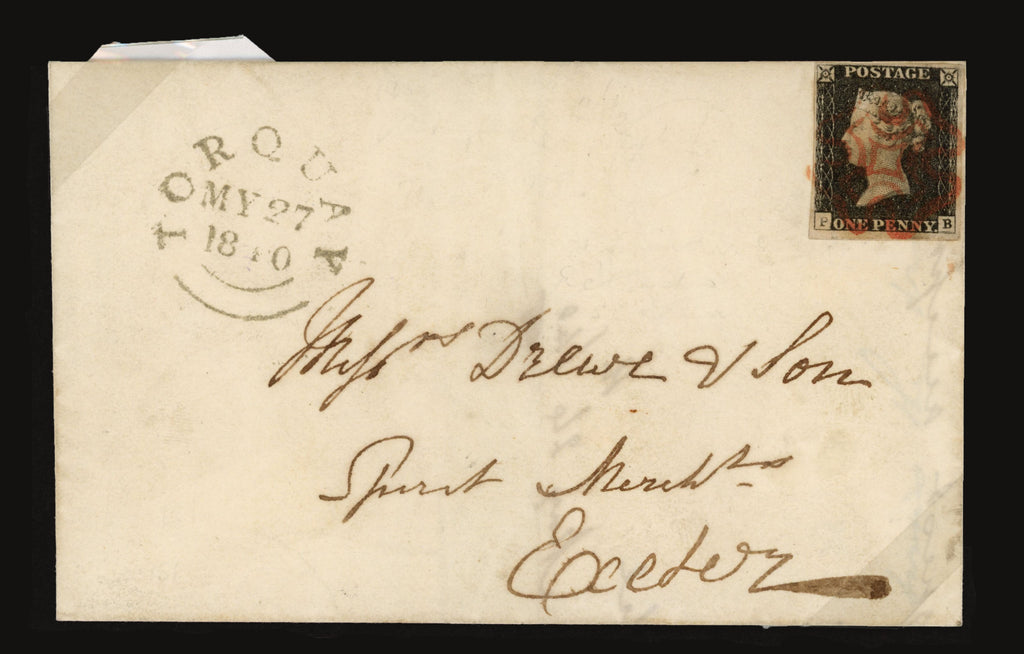 TORQUAY
MY 27
1840
POSTAGE
P ONE PENNY. B
Messrs Drewe & Son
Spirit Mercht.s
Exeter